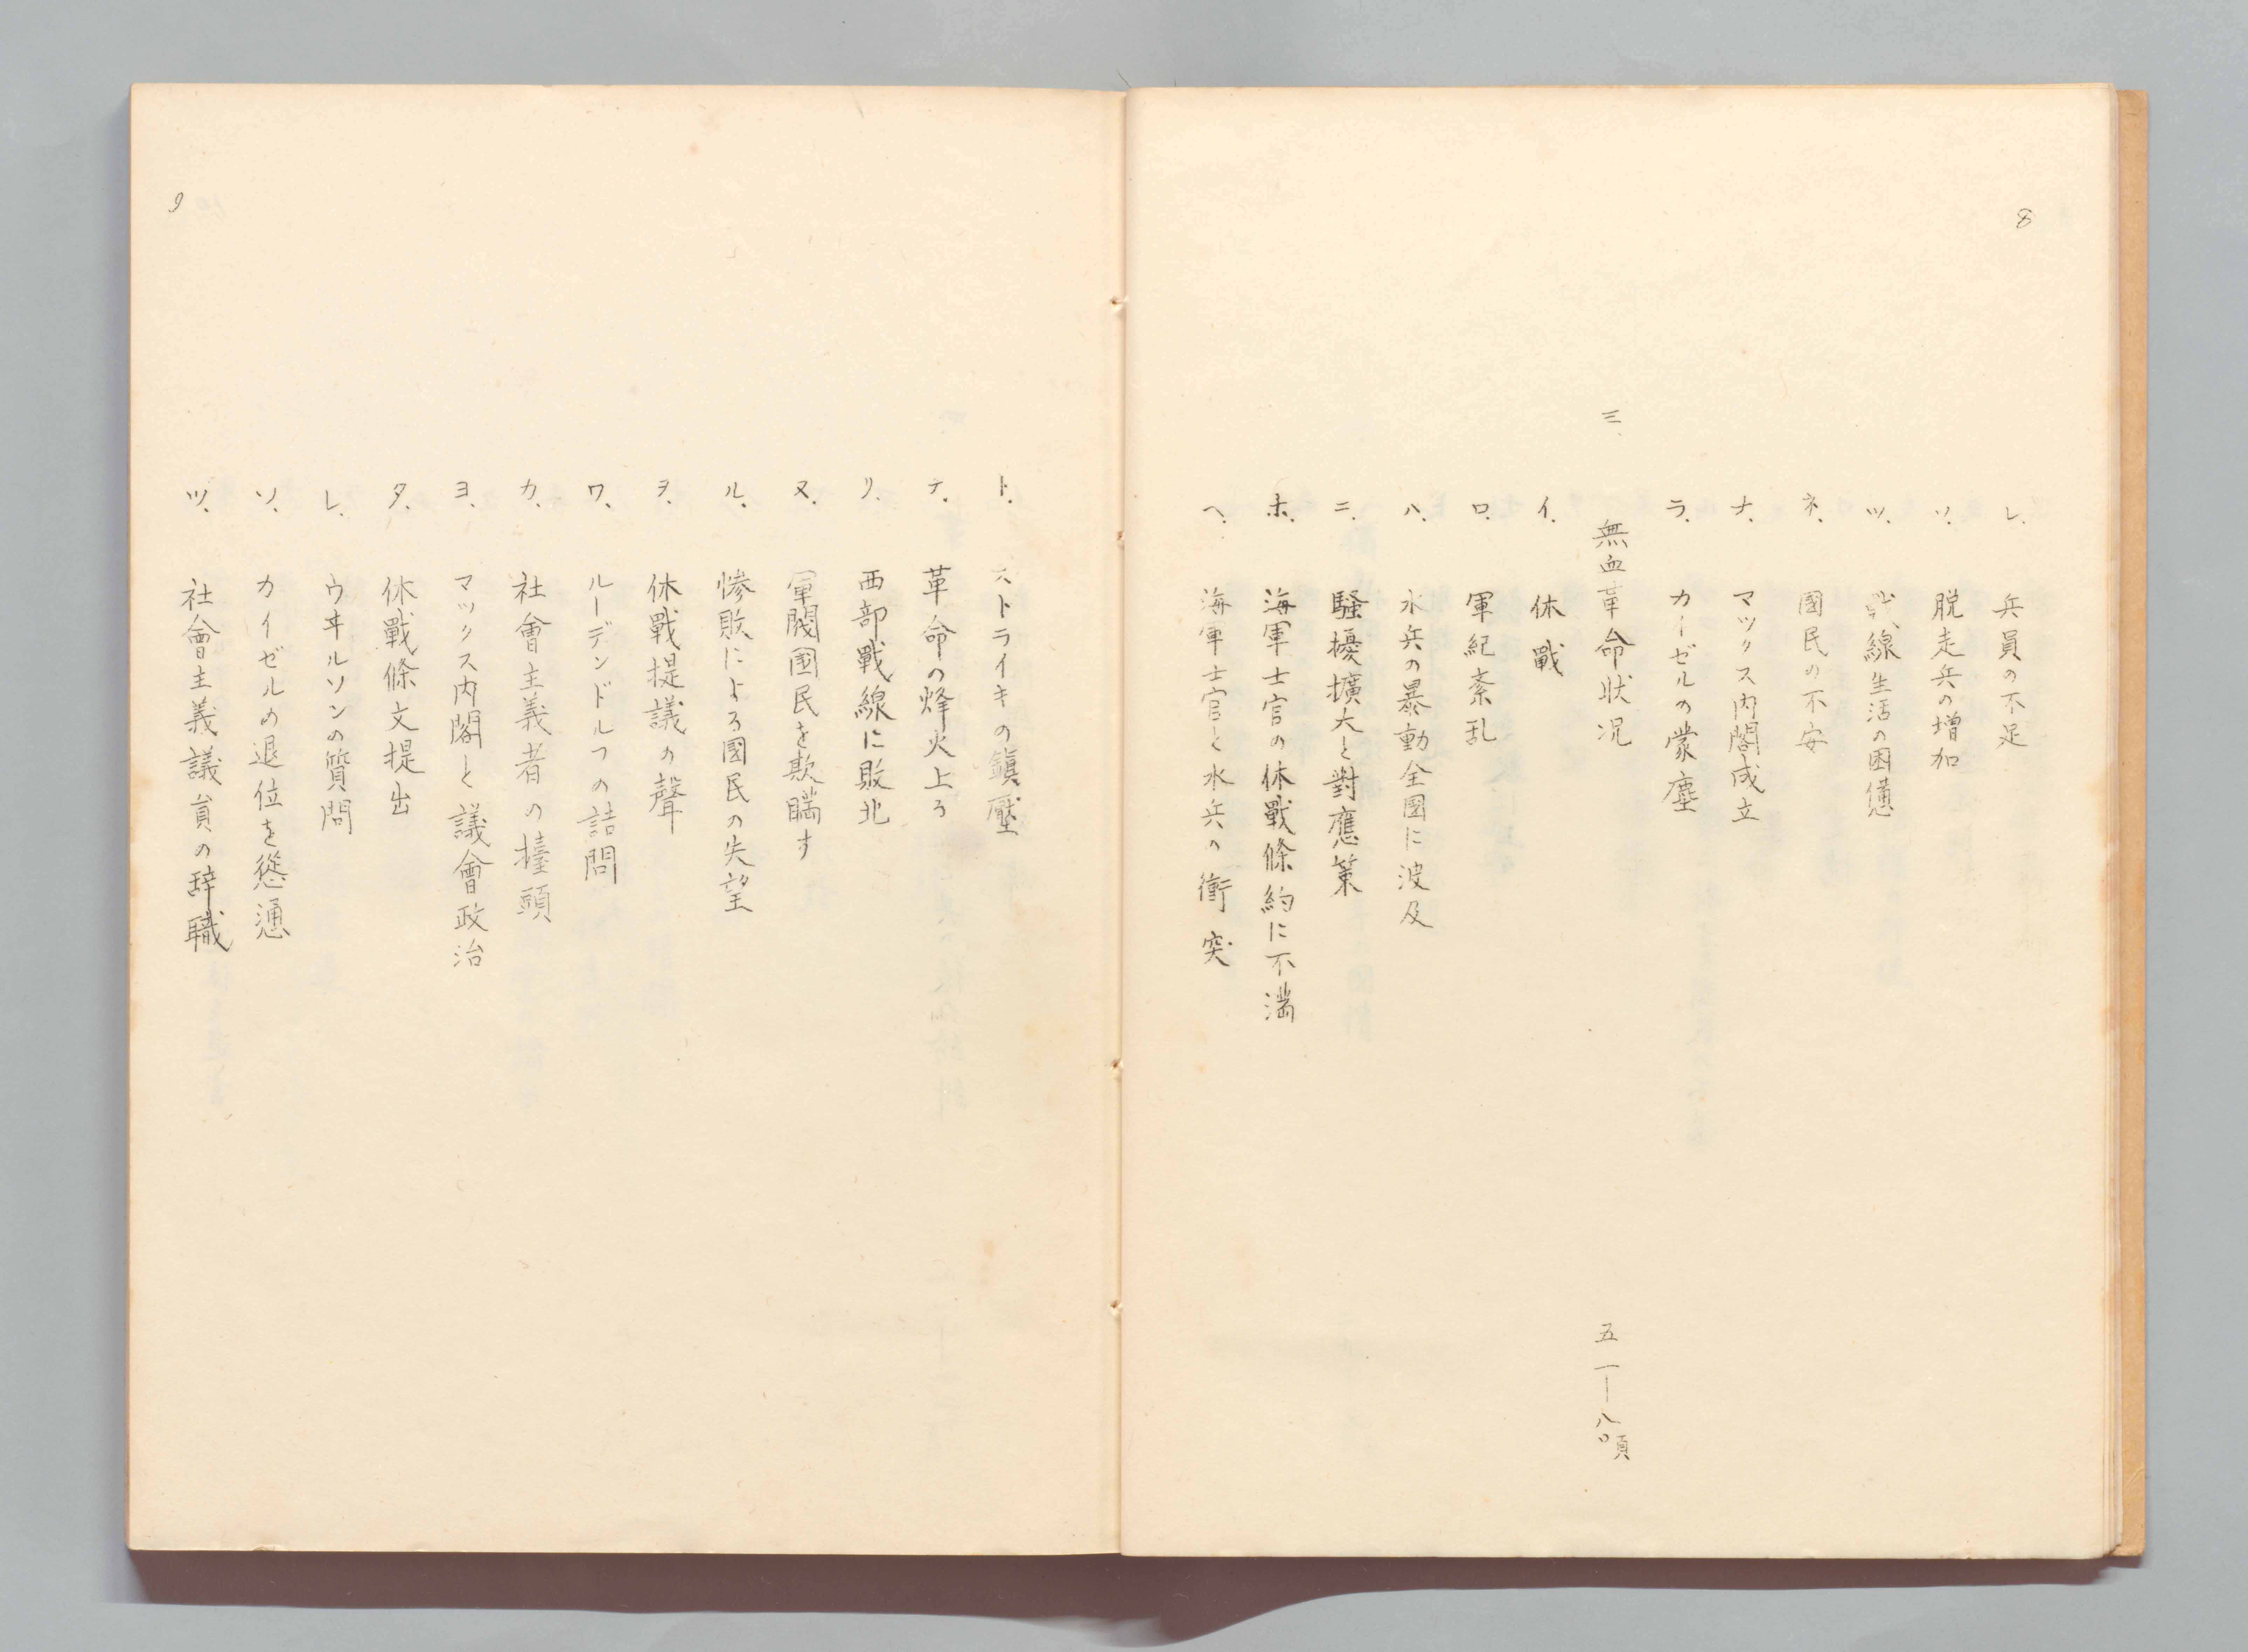 8
レ、兵員の不足
ソ、脱走兵の増加
ツ、戰線生活の困憊
ネ、國民の不安
ナ、マックス内閣成立
ラ、カーゼルの蒙塵
三、無血革命状况 五一―八〇頁
イ、休戰
ロ、軍紀紊乱
ハ、水兵の暴動全國に波及
ニ、騒擾擴大と對應策
ホ、海軍士官の休戰條約に不満
ヘ、海軍士官と水兵の衝突
ト、ストライキの鎭壓
チ、革命の烽火上る
リ、西部戰線に敗北
ヌ、軍閥國民を欺瞞す
ル、惨敗による國民の失望
ヲ、休戰提議の聲
ワ、ルーデンドルフの詰問
カ、社會主義者の擡頭
ヨ、マックス内閣と議會政治
タ、休戰條文提出
レ、ウヰルソンの質問
ソ、カイゼルの退位を慫慂
ツ、社會主義議員の辞職
9